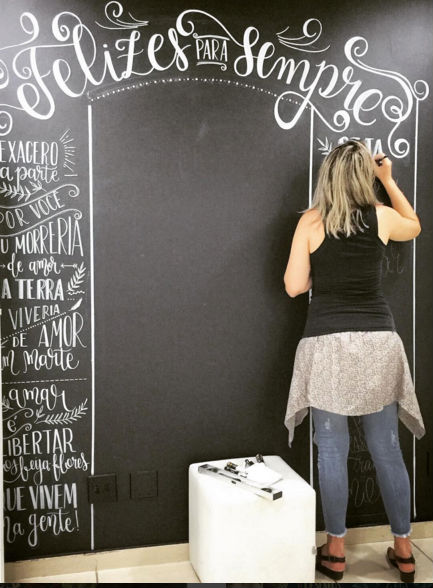 Felizes PARA sempre
EXAGERO
a parte
POR VOCÊ
U MORRERIA
de amor
A TERRA
VIVERIA
DE AMOR
m marte
amar
LIBERTAR
QUE VIVEM
na gente!